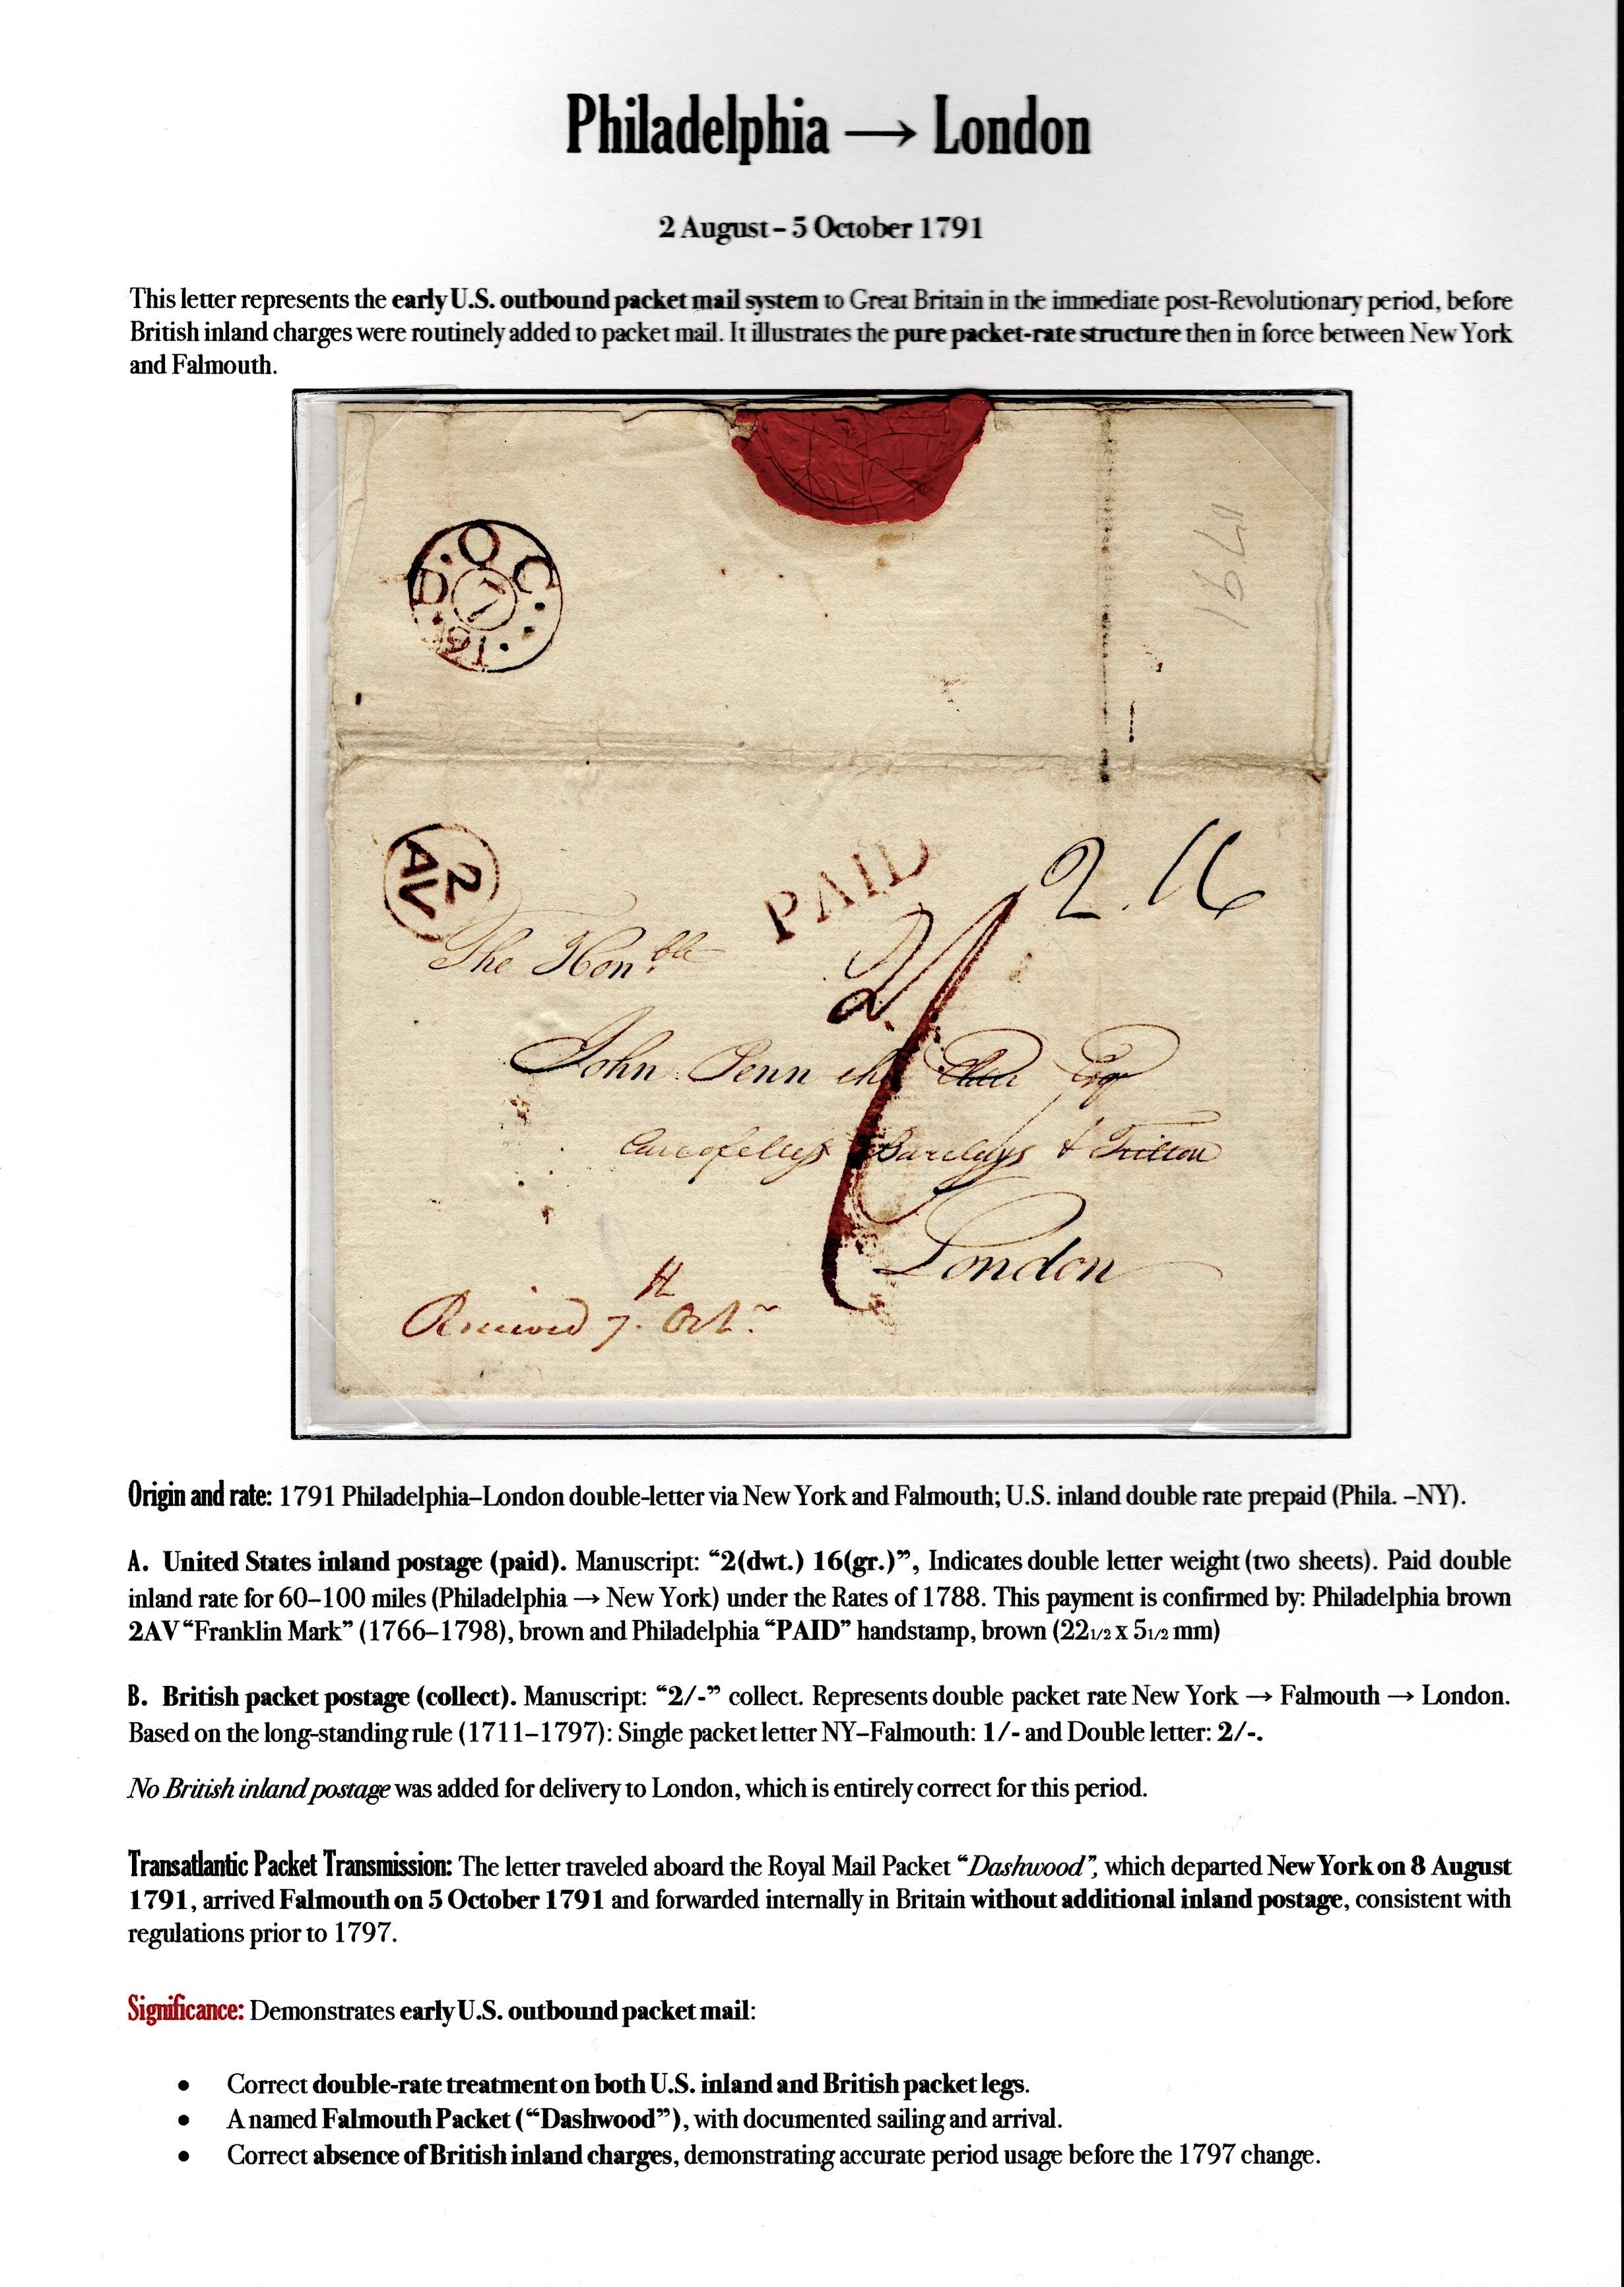 Philadelphia → London
2 August – 5 October 1791
This letter represents the early U.S. outbound packet mail system to Great Britain in the immediate post-Revolutionary period, before
British inland charges were routinely added to packet mail. It illustrates the pure packet-rate structure then in force between New York
and Falmouth.
D·OC
7
91
1791
2
AV
PAID
2.16
2/
The Hon.ble
John Penn the Esq
Barclays & Tritton
London
H
Received 7. Octr
Origin and rate: 1791 Philadelphia–London double-letter via New York and Falmouth; U.S. inland double rate prepaid (Phila. –NY).
A. United States inland postage (paid). Manuscript: “2(dwt.) 16(gr.)”, Indicates double letter weight (two sheets). Paid double
inland rate for 60–100 miles (Philadelphia → New York) under the Rates of 1788. This payment is confirmed by: Philadelphia brown
2AV “Franklin Mark” (1766–1798), brown and Philadelphia “PAID” handstamp, brown (22 1/2 x 5 1/2 mm)
B. British packet postage (collect). Manuscript: “2/-” collect. Represents double packet rate New York → Falmouth → London.
Based on the long-standing rule (1711–1797): Single packet letter NY–Falmouth: 1/- and Double letter: 2/-.
No British inland postage was added for delivery to London, which is entirely correct for this period.
Transatlantic Packet Transmission: The letter traveled aboard the Royal Mail Packet “Dashwood”, which departed New York on 8 August
1791, arrived Falmouth on 5 October 1791 and forwarded internally in Britain without additional inland postage, consistent with
regulations prior to 1797.
Significance: Demonstrates early U.S. outbound packet mail:
• Correct double-rate treatment on both U.S. inland and British packet legs.
• A named Falmouth Packet (“Dashwood”), with documented sailing and arrival.
• Correct absence of British inland charges, demonstrating accurate period usage before the 1797 change.